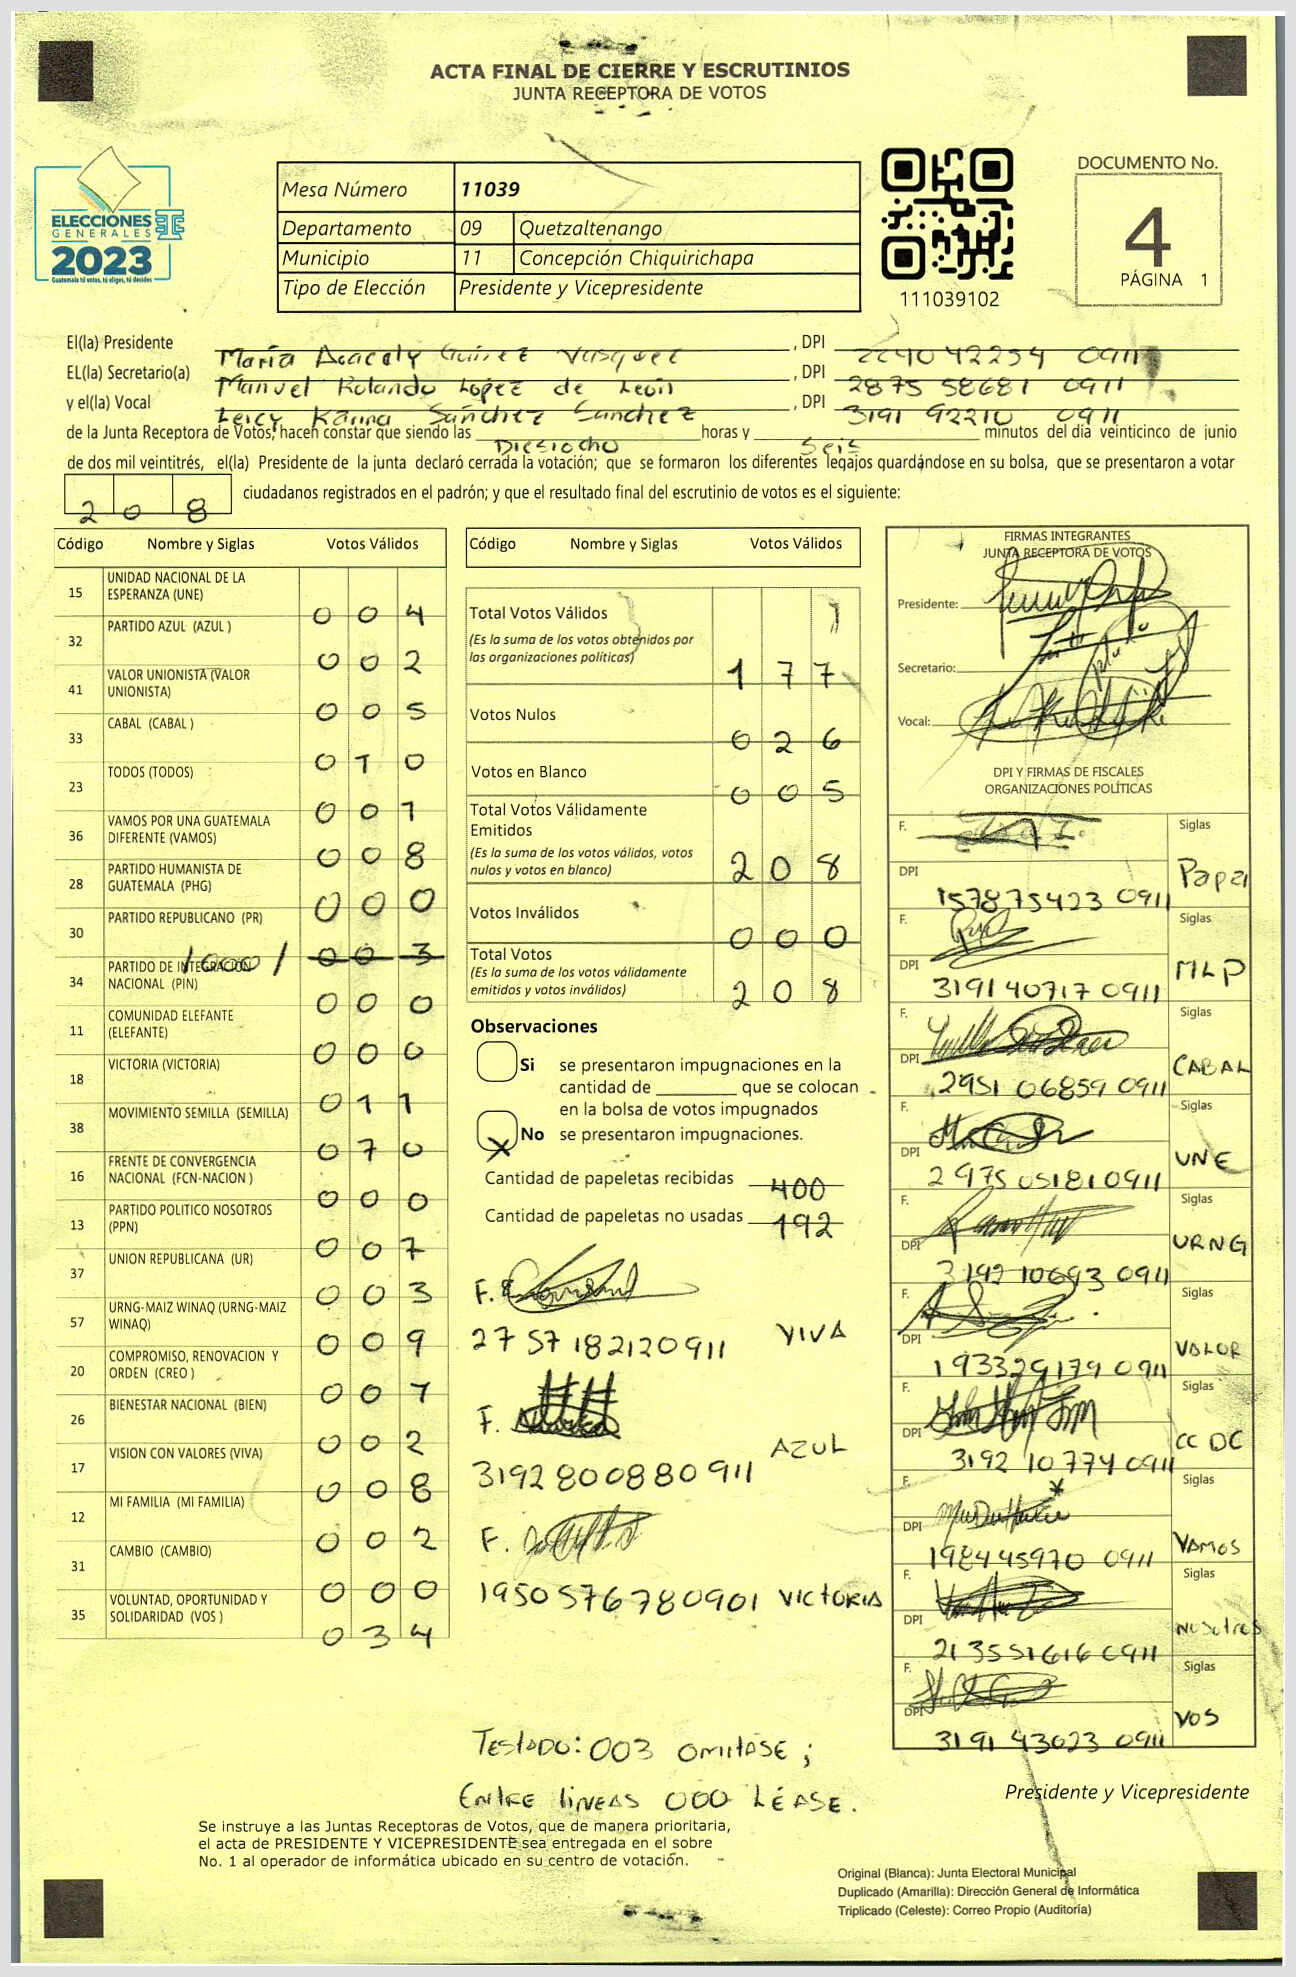 ACTA FINAL DE CIERRE Y ESCRUTINIOS
JUNTA RECEPTORA DE VOTOS
ELECCIONES
GENERALES
2023
Guatemala tú votas, tú eliges, tú decides
Mesa Número 11039
Departamento 09 Quetzaltenango
Municipio 11 Concepción Chiquirichapa
Tipo de Elección Presidente y Vicepresidente
111039102
DOCUMENTO No.
4
PÁGINA 1
El(la) Presidente María Vasquez , DPI 0911
EL(la) Secretario(a) Manuel Rolando Lopez de León , DPI 2875 58681 0911
y el(la) Vocal Leicy Karina Sánchez Sanchez , DPI 3191 92210 0911
de la Junta Receptora de Votos, hacen constar que siendo las Diesiocho horas y Seis minutos del día veinticinco de junio
de dos mil veintitrés, el(la) Presidente de la junta declaró cerrada la votación; que se formaron los diferentes legajos guardándose en su bolsa, que se presentaron a votar
208 ciudadanos registrados en el padrón; y que el resultado final del escrutinio de votos es el siguiente:
Código Nombre y Siglas Votos Válidos
15 UNIDAD NACIONAL DE LA ESPERANZA (UNE) 004
32 PARTIDO AZUL (AZUL ) 002
41 VALOR UNIONISTA (VALOR UNIONISTA) 005
33 CABAL (CABAL ) 010
23 TODOS (TODOS) 001
36 VAMOS POR UNA GUATEMALA DIFERENTE (VAMOS) 008
28 PARTIDO HUMANISTA DE GUATEMALA (PHG) 000
30 PARTIDO REPUBLICANO (PR) /000/ 003
34 PARTIDO DE INTEGRACION NACIONAL (PIN) 000
11 COMUNIDAD ELEFANTE (ELEFANTE) 000
18 VICTORIA (VICTORIA) 011
38 MOVIMIENTO SEMILLA (SEMILLA) 070
16 FRENTE DE CONVERGENCIA NACIONAL (FCN-NACION ) 000
13 PARTIDO POLITICO NOSOTROS (PPN) 007
37 UNION REPUBLICANA (UR) 003
57 URNG-MAIZ WINAQ (URNG-MAIZ WINAQ) 009
20 COMPROMISO, RENOVACION Y ORDEN (CREO ) 001
26 BIENESTAR NACIONAL (BIEN) 002
17 VISION CON VALORES (VIVA) 008
12 MI FAMILIA (MI FAMILIA) 002
31 CAMBIO (CAMBIO) 000
35 VOLUNTAD, OPORTUNIDAD Y SOLIDARIDAD (VOS ) 034
Código Nombre y Siglas Votos Válidos
Total Votos Válidos 177
(Es la suma de los votos obtenidos por
las organizaciones políticas)
Votos Nulos 026
Votos en Blanco 005
Total Votos Válidamente
Emitidos
(Es la suma de los votos válidos, votos
nulos y votos en blanco) 208
Votos Inválidos 000
Total Votos
(Es la suma de los votos válidamente
emitidos y votos inválidos) 208
Observaciones
Si se presentaron impugnaciones en la
cantidad de ________ que se colocan
en la bolsa de votos impugnados
X No se presentaron impugnaciones.
Cantidad de papeletas recibidas 400
Cantidad de papeletas no usadas 192
F.
2757 182120911 VIVA
F.
3192800880911 AZUL
F.
1950576780901 VICTORIA
FIRMAS INTEGRANTES
JUNTA RECEPTORA DE VOTOS
Presidente:
Secretario:
Vocal:
DPI Y FIRMAS DE FISCALES
ORGANIZACIONES POLÍTICAS
F. Siglas
DPI 157875423 0911
F. Siglas
DPI 3191407170911 MLP
F. Siglas
DPI 2951 06859 0911 CABAL
F. Siglas
DPI 2975 051810911 UNE
F. Siglas
DPI 3192 10693 0911 URNG
F. Siglas
DPI 193329179 0911 VALOR
F. Siglas
DPI 3192 10774 0911 CC DC
F. Siglas
DPI 198445970 0911 VAMOS
F. Siglas
DPI 213551616 0911 Nosotros
F. Siglas
DPI 3191 43023 0911 VOS
Testado: 003 omitase;
Entre lineas 000 LÉASE.
Presidente y Vicepresidente
Se instruye a las Juntas Receptoras de Votos, que de manera prioritaria,
el acta de PRESIDENTE Y VICEPRESIDENTE sea entregada en el sobre
No. 1 al operador de informática ubicado en su centro de votación.
Original (Blanca): Junta Electoral Municipal
Duplicado (Amarilla): Dirección General de Informática
Triplicado (Celeste): Correo Propio (Auditoría)